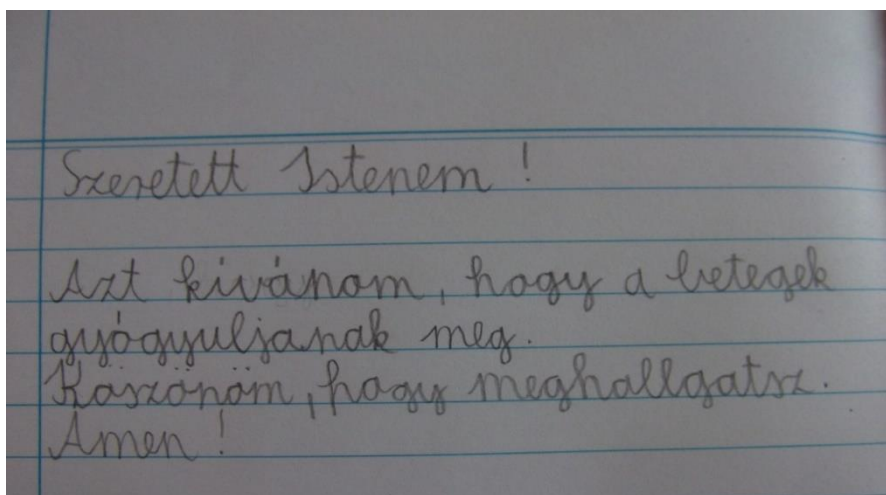 Szeretett Istenem!
Azt kívánom, hogy a betegek
gyógyuljanak meg.
Köszönöm, hogy meghallgatsz.
Ámen!